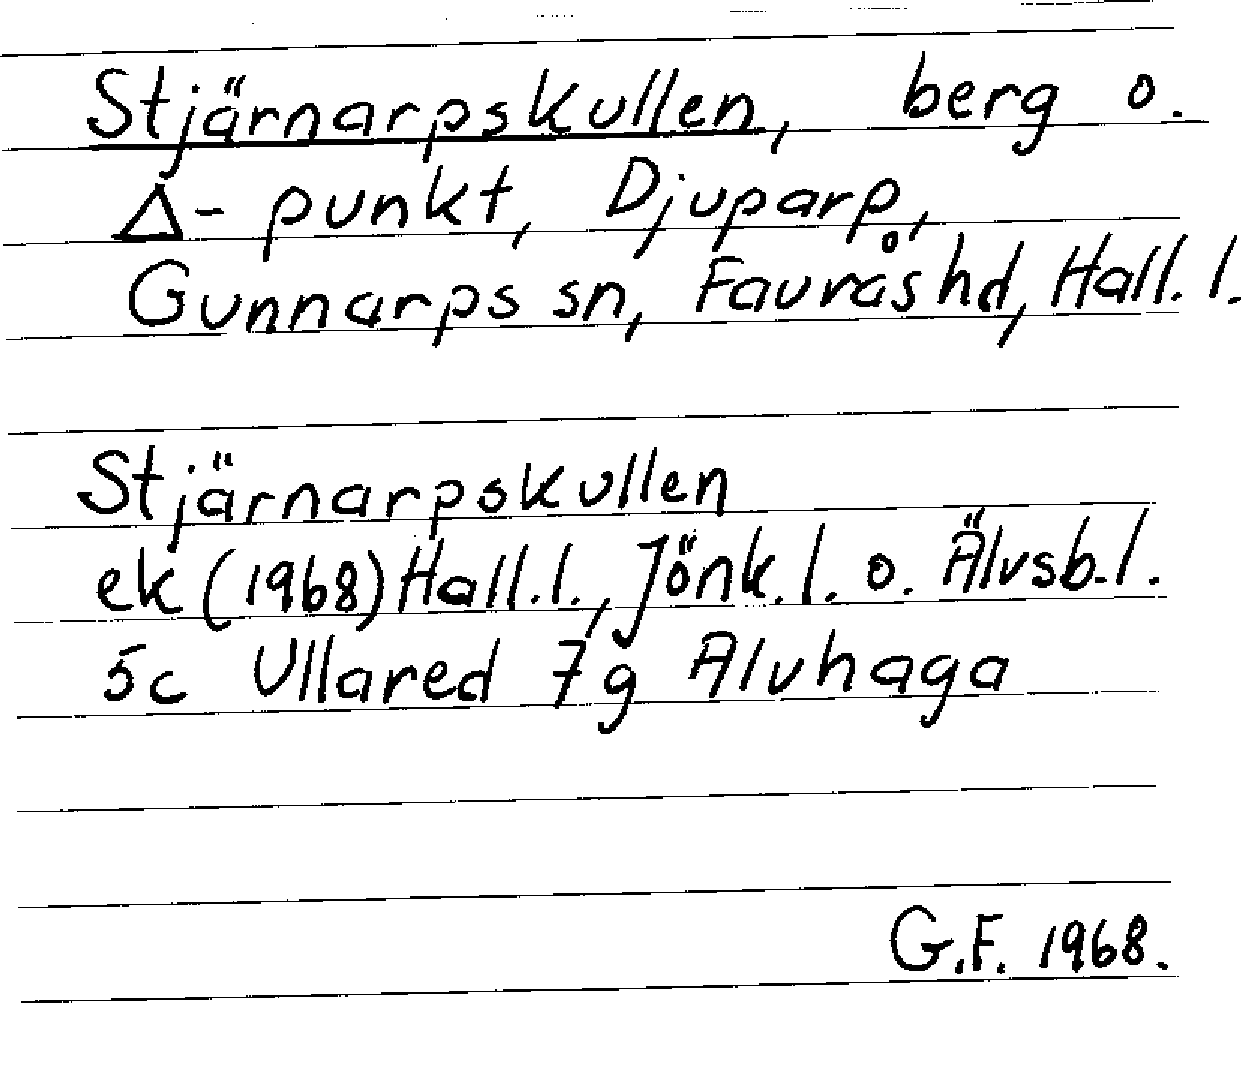 Stjärnarpskullen, berg o.
Δ- punkt, Djuparp,
Gunnarps sn, Faurås hd, Hall. l.
Stjärnarpskullen
ek (1968) Hall. l., Jönk. l. o. Älvsb. l.
5c Ullared 7g Alvhaga
G.F. 1968.